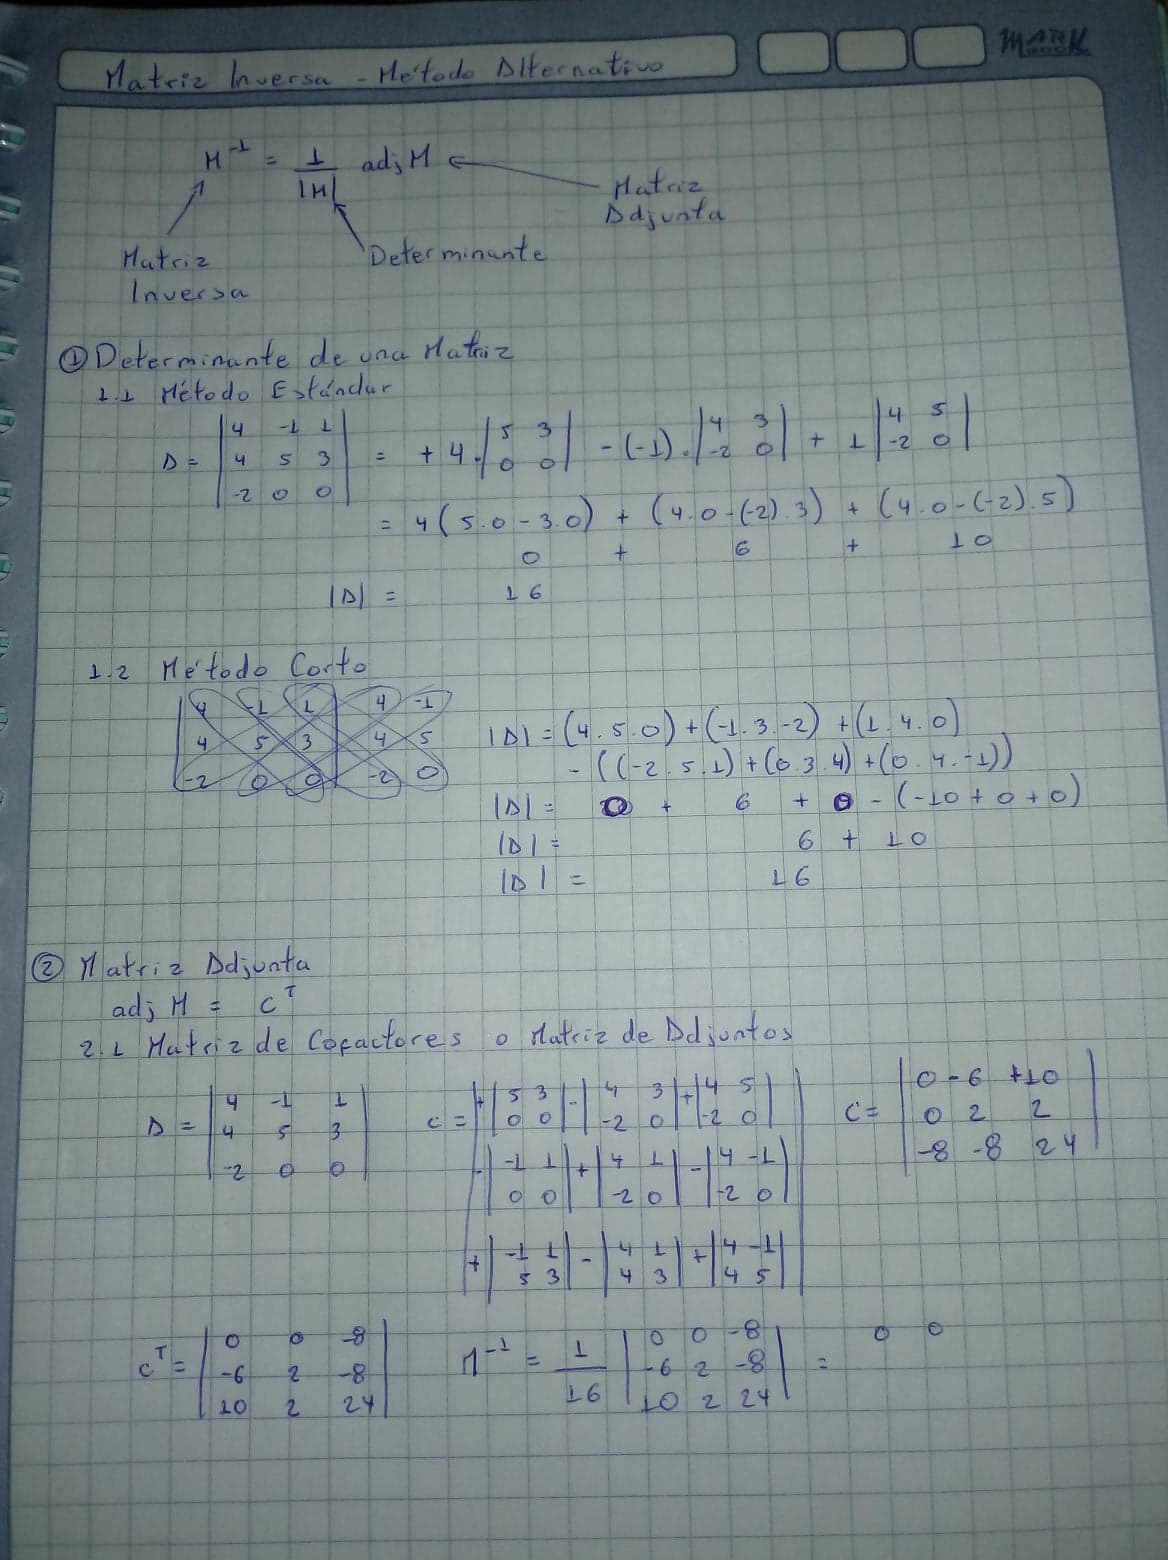 MARK BOOK
Matriz Inversa - Método Alternativo
M⁻¹ = 1/|M| adj M
Matriz
Adjunta
Determinante
Matriz
Inversa
① Determinante de una Matriz
1.1 Método Estándar
A = | 4 -1 1 | = + 4 . | 5 3 | - (-1) . | 4 3 | + 1 | 4 5 |
| 4 5 3 | | 0 0 | | -2 0 | | -2 0 |
| -2 0 0 |
= 4 (5.0 - 3.0) + (4.0 - (-2).3) + (4.0 - (-2).5)
0 + 6 + 10
|A| = 16
1.2 Método Corto
| 4 -1 1 | 4 -1
| 4 5 3 | 4 5
| -2 0 0 | -2 0
|A| = (4.5.0) + (-1.3.-2) + (1.4.0)
- ((-2.5.1) + (0.3.4) + (0.4.-1))
|A| = 0 + 6 + 0 - (-10 + 0 + 0)
|A| = 6 + 10
|A| = 16
② Matriz Adjunta
adj M = Cᵀ
2.1 Matriz de Cofactores o Matriz de Adjuntos
A = | 4 -1 1 |
| 4 5 3 |
| -2 0 0 |
C = | + | 5 3 | - | 4 3 | + | 4 5 | |
| 0 0 | | -2 0 | | -2 0 |
- | -1 1 | + | 4 1 | - | 4 -1 |
| 0 0 | | -2 0 | | -2 0 |
+ | -1 1 | - | 4 1 | + | 4 -1 |
| 5 3 | | 4 3 | | 4 5 |
C = | 0 -6 +10 |
| 0 2 2 |
| -8 -8 24 |
Cᵀ = | 0 0 -8 |
| -6 2 -8 |
| 10 2 24 |
M⁻¹ = 1/16 | 0 0 -8 | = 0 0
| -6 2 -8 |
| 10 2 24 |